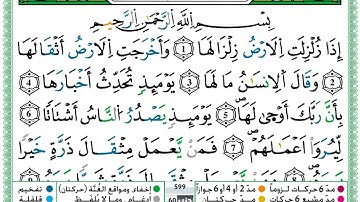 بِسْمِ ٱللَّهِ ٱلرَّحْمَٰنِ ٱلرَّحِيمِ
إِذَا زُلْزِلَتِ ٱلْأَرْضُ زِلْزَالَهَا ١ وَأَخْرَجَتِ ٱلْأَرْضُ أَثْقَالَهَا
٢ وَقَالَ ٱلْإِنسَٰنُ مَا لَهَا ٣ يَوْمَئِذٍ تُحَدِّثُ أَخْبَارَهَا ٤
بِأَنَّ رَبَّكَ أَوْحَىٰ لَهَا ٥ يَوْمَئِذٍ يَصْدُرُ ٱلنَّاسُ أَشْتَاتًا
لِّيُرَوْا۟ أَعْمَٰلَهُمْ ٦ فَمَن يَعْمَلْ مِثْقَالَ ذَرَّةٍ خَيْرًا
مدّ 6 حركات لزوماً مدّ 2 أو 4 أو 6 جوازاً 599 إخفاء، ومواقع الغُنَّة (حركتان) تفخيم
مدّ مشبع 6 حركات مدّ حركتان 60 إدغام، وما لا يُلفَظ قلقلة